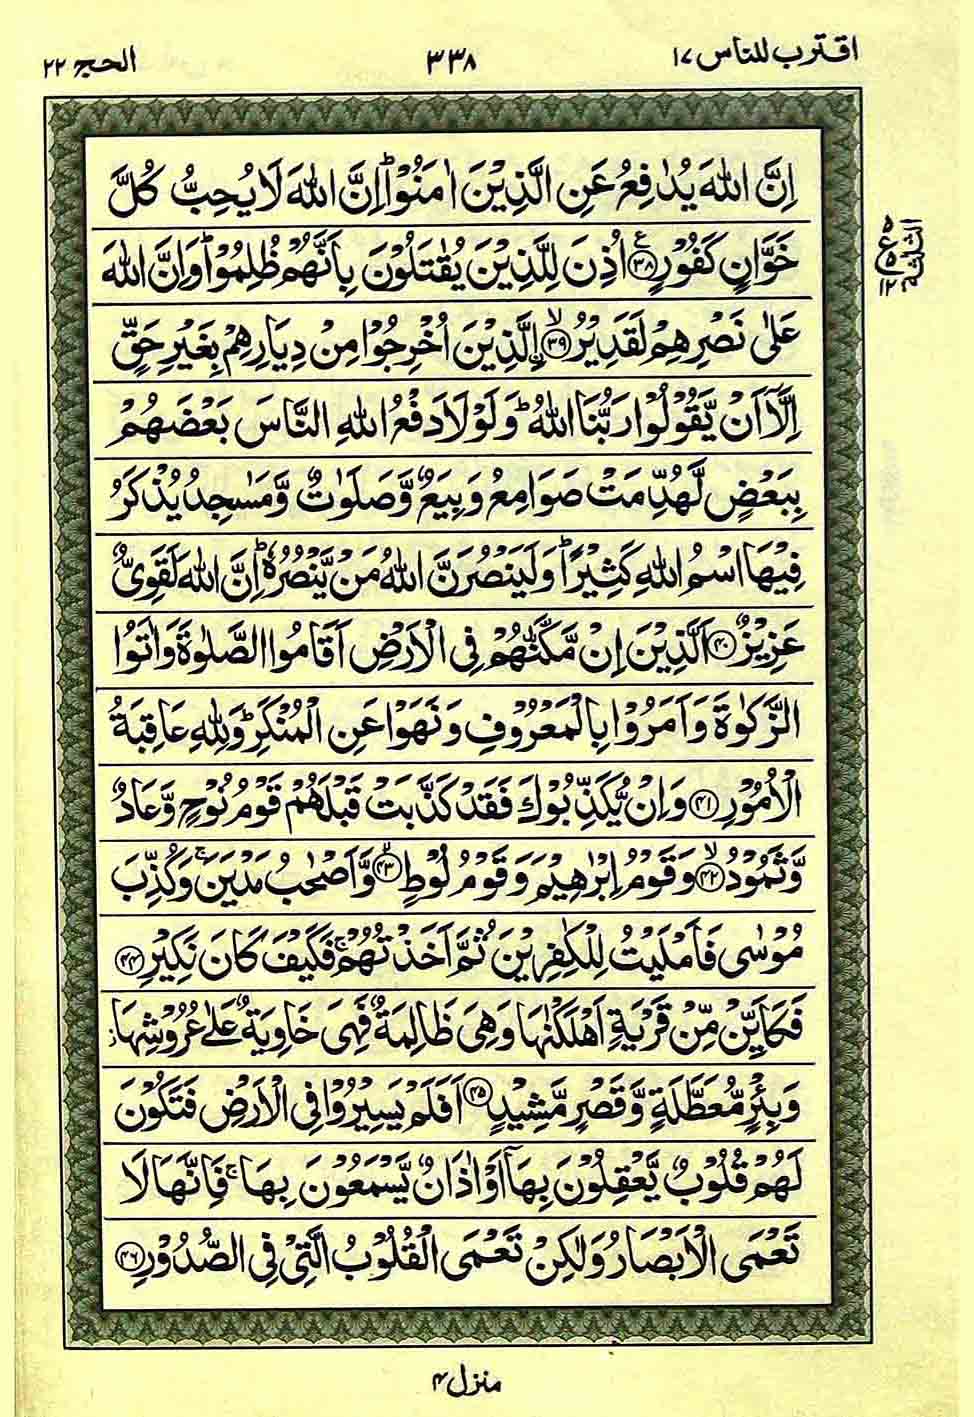 اقترب للناس ١٧
٣٣٨
الحج ٢٢
اِنَّ اللّٰهَ يُدٰفِعُ عَنِ الَّذِيْنَ اٰمَنُوْا ؕ اِنَّ اللّٰهَ لَا يُحِبُّ كُلَّ
خَوَّانٍ كَفُوْرٍ ﴿٣٨﴾ اُذِنَ لِلَّذِيْنَ يُقٰتَلُوْنَ بِاَنَّهُمْ ظُلِمُوْا ؕ وَاِنَّ اللّٰهَ
عَلٰى نَصْرِهِمْ لَقَدِيْرُ ۙ﴿٣٩﴾ اۨلَّذِيْنَ اُخْرِجُوْا مِنْ دِيَارِهِمْ بِغَيْرِ حَقٍّ
اِلَّاۤ اَنْ يَّقُوْلُوْا رَبُّنَا اللّٰهُ ؕ وَلَوْلَا دَفْعُ اللّٰهِ النَّاسَ بَعْضَهُمْ
بِبَعْضٍ لَّهُدِّمَتْ صَوَامِعُ وَبِيَعٌ وَّصَلَوٰتٌ وَّمَسٰجِدُ يُذْكَرُ
فِيْهَا اسْمُ اللّٰهِ كَثِيْرًا ؕ وَلَيَنْصُرَنَّ اللّٰهُ مَنْ يَّنْصُرُهٗ ؕ اِنَّ اللّٰهَ لَقَوِىٌّ
عَزِيْزٌ ﴿٤٠﴾ اَلَّذِيْنَ اِنْ مَّكَّنّٰهُمْ فِى الْاَرْضِ اَقَامُوا الصَّلٰوةَ وَاٰتَوُا
الزَّكٰوةَ وَاَمَرُوْا بِالْمَعْرُوْفِ وَنَهَوْا عَنِ الْمُنْكَرِ ؕ وَلِلّٰهِ عَاقِبَةُ
الْاُمُوْرِ ﴿٤١﴾ وَاِنْ يُّكَذِّبُوْكَ فَقَدْ كَذَّبَتْ قَبْلَهُمْ قَوْمُ نُوْحٍ وَّعَادٌ
وَّثَمُوْدُ ۙ﴿٤٢﴾ وَقَوْمُ اِبْرٰهِيْمَ وَقَوْمُ لُوْطٍ ۙ﴿٤٣﴾ وَّاَصْحٰبُ مَدْيَنَ ۚ وَكُذِّبَ
مُوْسٰى فَاَمْلَيْتُ لِلْكٰفِرِيْنَ ثُمَّ اَخَذْتُهُمْ ۚ فَكَيْفَ كَانَ نَكِيْرِ ﴿٤٤﴾
فَكَاَيِّنْ مِّنْ قَرْيَةٍ اَهْلَكْنٰهَا وَهِىَ ظَالِمَةٌ فَهِىَ خَاوِيَةٌ عَلٰى عُرُوْشِهَا ؗ
وَبِئْرٍ مُّعَطَّلَةٍ وَّقَصْرٍ مَّشِيْدٍ ﴿٤٥﴾ اَفَلَمْ يَسِيْرُوْا فِى الْاَرْضِ فَتَكُوْنَ
لَهُمْ قُلُوْبٌ يَّعْقِلُوْنَ بِهَاۤ اَوْ اٰذَانٌ يَّسْمَعُوْنَ بِهَا ۚ فَاِنَّهَا لَا
تَعْمَى الْاَبْصَارُ وَلٰكِنْ تَعْمَى الْقُلُوْبُ الَّتِىْ فِى الصُّدُوْرِ ﴿٤٦﴾
الثلثة
ع
١٢
منزل ٤